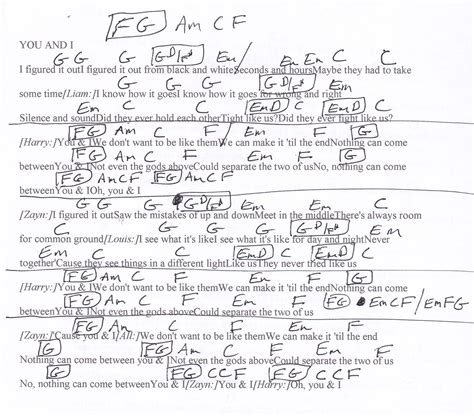 FG Am C F
YOU AND I
G G G G D/F# Em/ Em Em C C
I figured it outI figured it out from black and whiteSeconds and hoursMaybe they had to take
G G G G D/F# Em
some time[Liam:]I know how it goesI know how it goes for wrong and right
Em C C Em D C Em D C
Silence and soundDid they ever hold each otherTight like us?Did they ever fight like us?
FG Am C F/ Em F G
[Harry:]You & IWe don't want to be like themWe can make it 'til the endNothing can come
FG Am C F Em F G
betweenYou & INot even the gods aboveCould separate the two of usNo, nothing can come
FG Am C F FG Am C F
betweenYou & IOh, you & I
G G G D/F# Em Em C C
[Zayn:]I figured it outSaw the mistakes of up and downMeet in the middleThere's always room
G G G G D/F# Em
for common ground[Louis:]I see what it's likeI see what it's like for day and nightNever
Em C C Em D C Em D C
together'Cause they see things in a different lightLike usThey never tried like us
FG Am C F Em F G
[Harry:]You & IWe don't want to be like themWe can make it 'til the endNothing can come
FG Am C F Em F FG Em C F/Em F G
betweenYou & INot even the gods aboveCould separate the two of us
FG Am C F Em F
[Zayn:]'Cause you & I[All:]We don't want to be like themWe can make it 'til the end
G FG Am C F Em F
Nothing can come between you & INot even the gods aboveCould separate the two of us
G FG C C F FG C C F
No, nothing can come betweenYou & I[Zayn:]You & I[Harry:]Oh, you & I